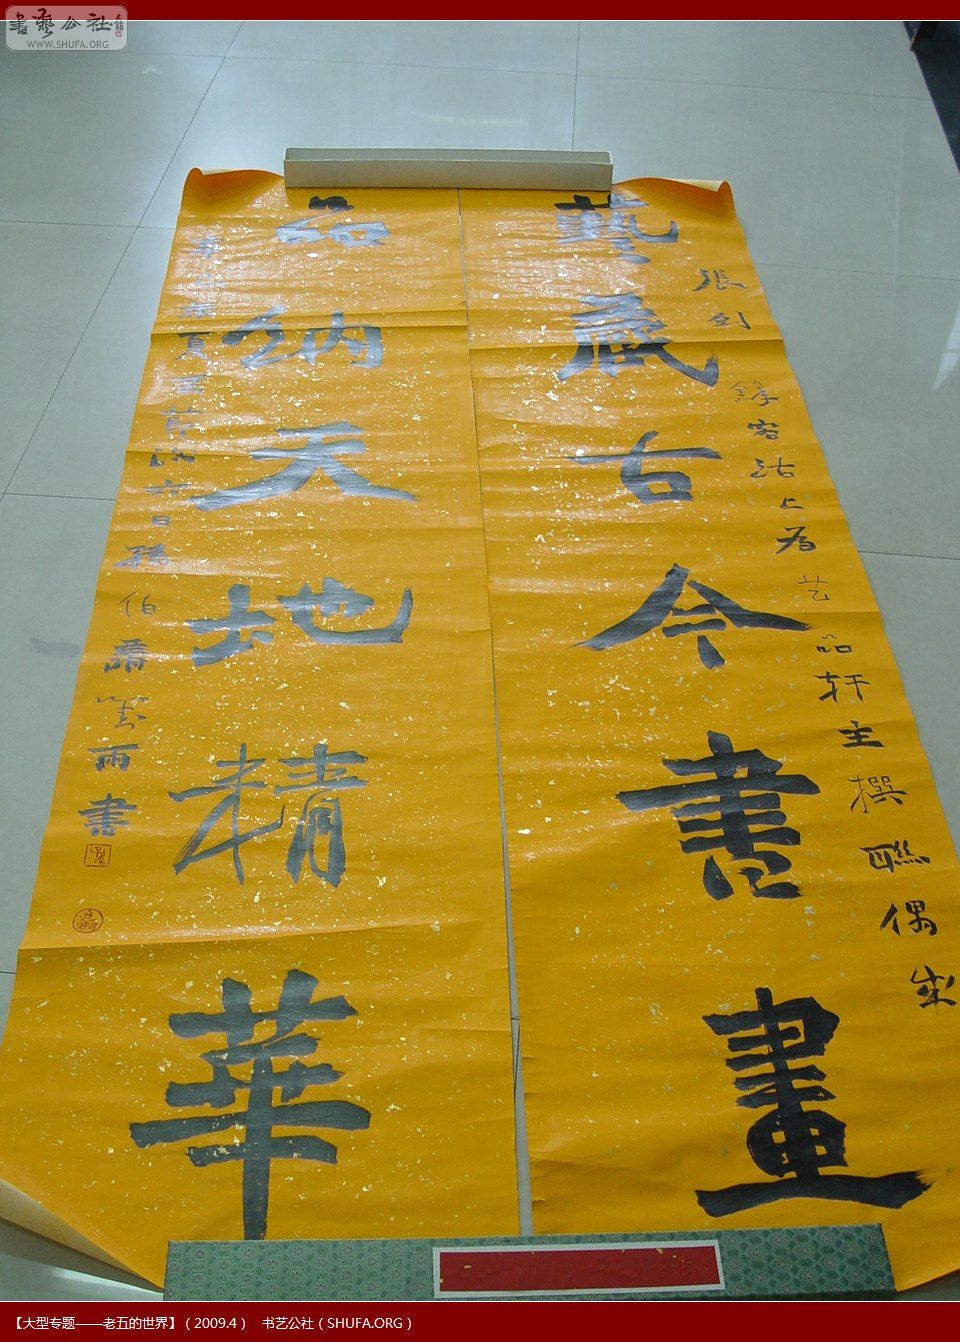 書藝公社
WWW.SHUFA.ORG
藝藏古今書畫
張劍鋒客沽上為艺品轩主撰聯偶成
品納天地精華
夏 六日孫伯 雨書
【大型专题——老五的世界】（2009.4） 书艺公社（SHUFA.ORG）